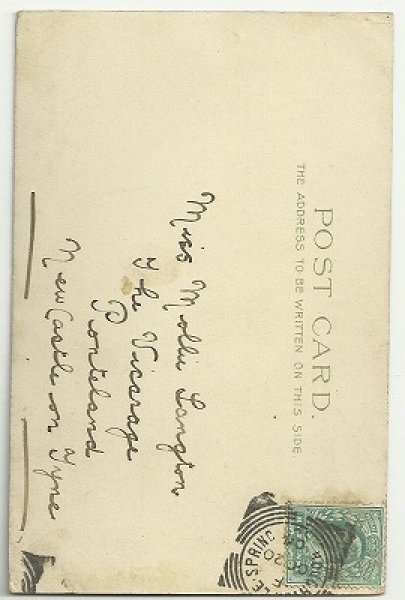 POST CARD.
THE ADDRESS TO BE WRITTEN ON THIS SIDE.
Miss Mollie Langton
The Vicarage
Ponteland
New Castle on Tyne